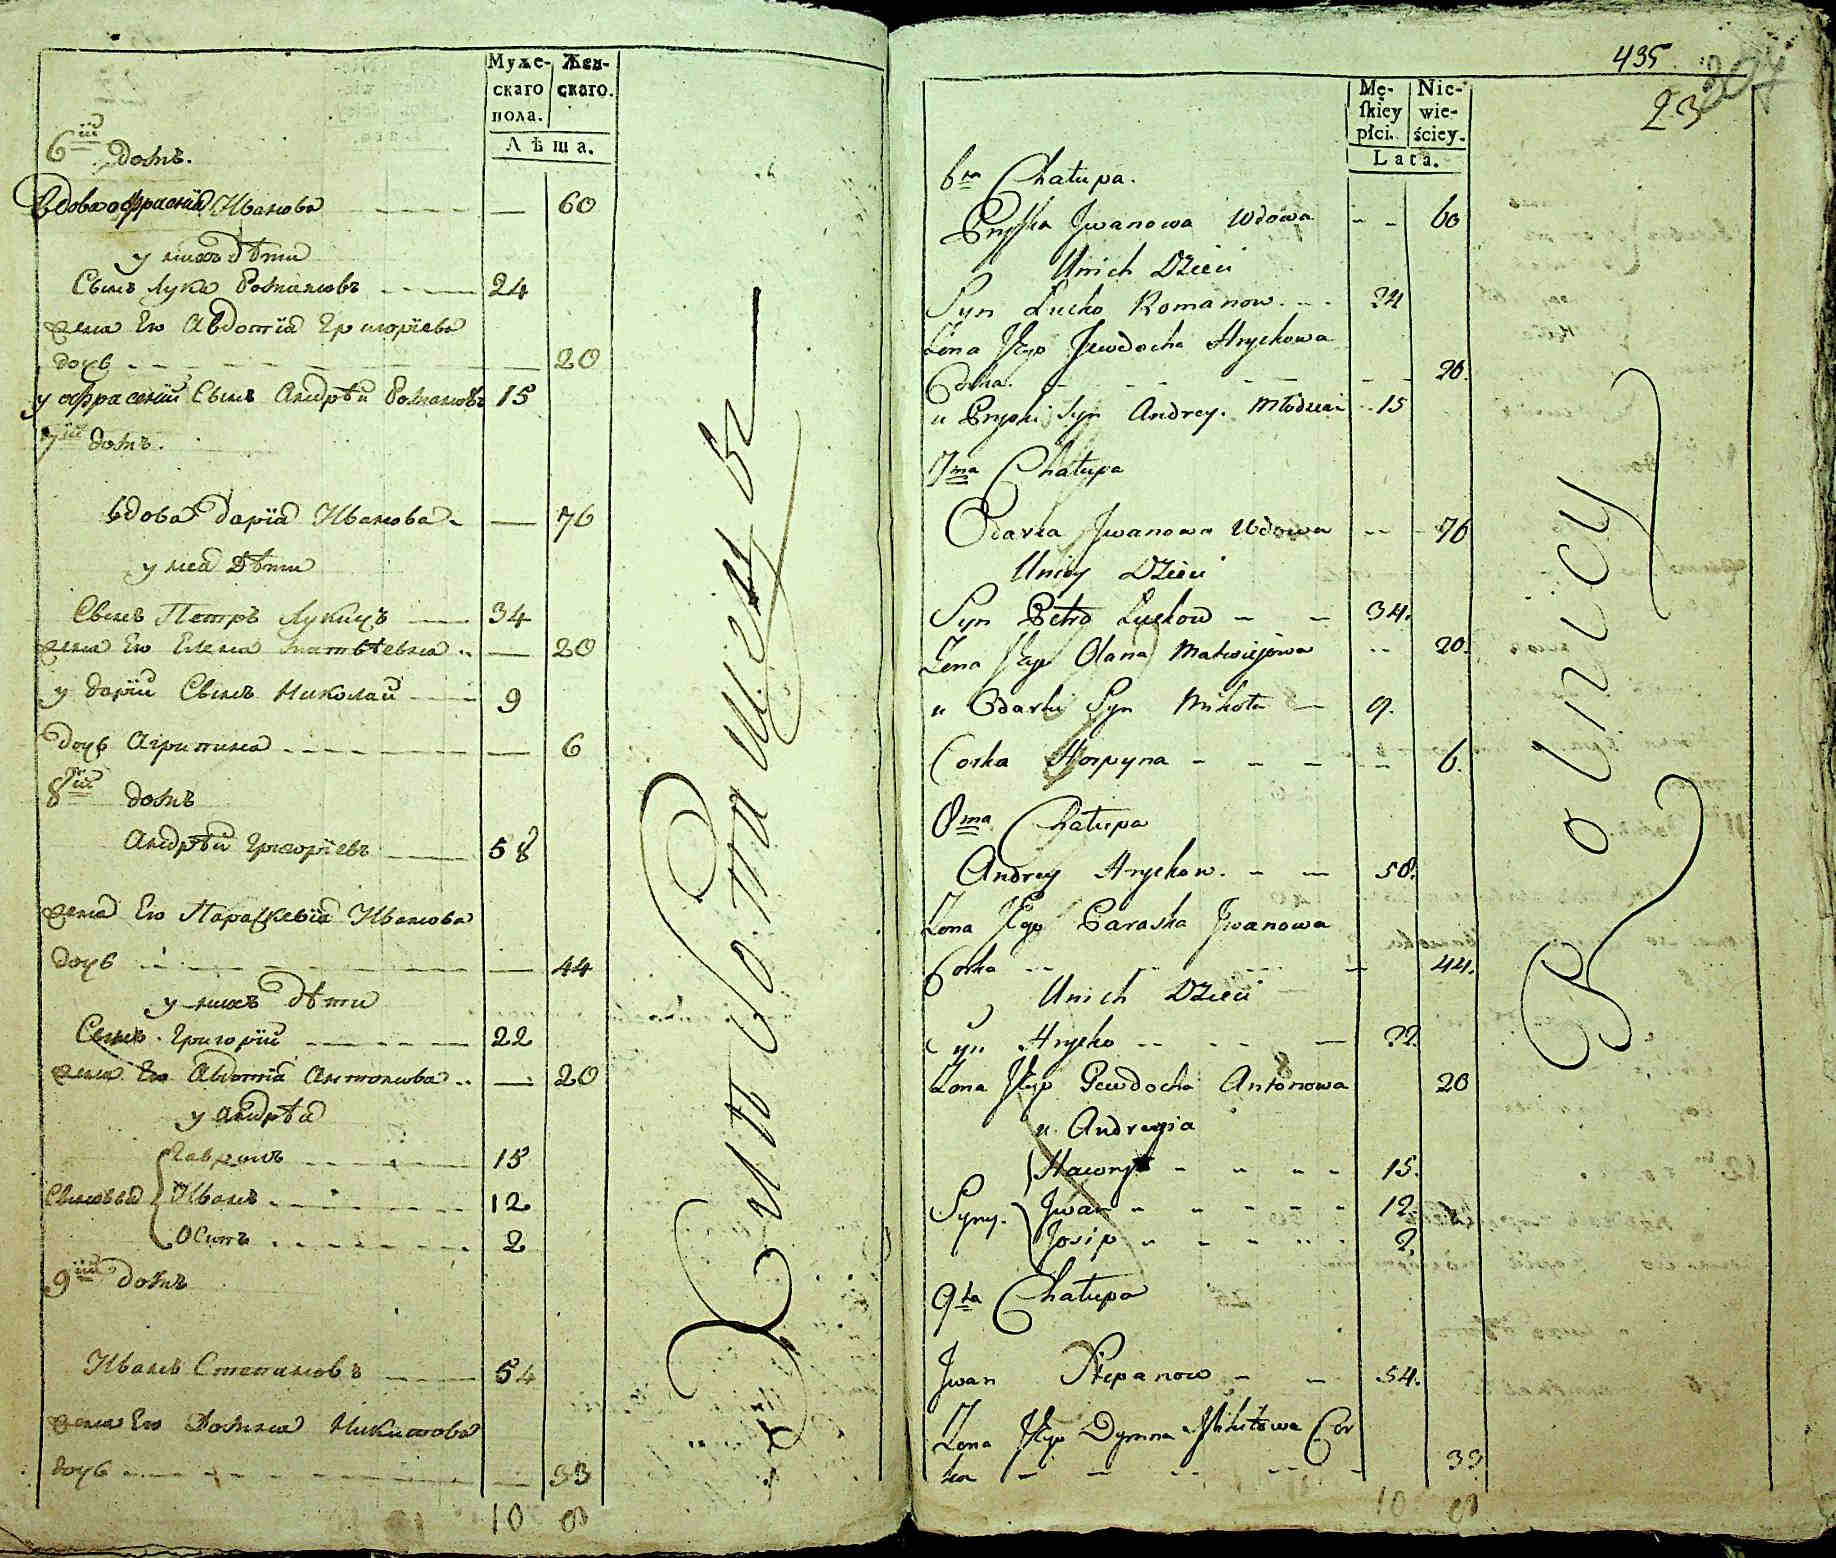 Муже-
скаго
пола.
Жен-
скаго.
Лѣта.
6ій домъ.
Вдова офрасиніа Иванова — 60
у нихъ дѣти
Сынъ Лука Романовъ 24
жена Его Авдотіа Григоріева
дочь — 20
у офрасиніи Сынъ Андрѣй Романовъ 15
7ій домъ.
вдова даріа Иванова — 76
у неа дѣти
Сынъ Петръ Лукинъ 34
жена Его Елена матвѣевна — 20
у даріи Сынъ Николай 9
дочь Агрипина — 6
8ій домъ
Андрѣй Григоріевъ 58
жена Его Параскевіа Иванова
дочь — 44
у нихъ дѣти
Сынъ Григорій 22
жена Его Авдотіа Антонова — 20
у андрѣа
Сыновьа
Гаврило 15
Иванъ 12
Осипъ 2
9ій домъ
Иванъ Степановъ 54
жена Его Домна Никитова
дочь — 33
10 8
435
23
Mę-
skiey
płci.
Nie-
wie-
ściey.
Lata.
6ta Chałupa.
Pryska Jwanowa Wdowa 60
Unich Dzieci
Syn Łucko Romanow 24
Zona Jego Jewdocha Hryckowa
Corka 20.
u Pryski Syn Andrey. Młodzian 15
7ma Chałupa
Odarka Jwanowa Wdowa 76
Uniey Dzieci
Syn Petro Łuckow 34.
Zona Jego Olana Matwiejowa 20.
u Odarki Syn Mikoła 9.
Corka Horpyna 6.
8ma Chałupa
Andrey Hryckow. 58.
Zona Jego Paraska Jwanowa
Corka 44.
Unich Dzieci
Syn Hrycko 22.
Zona Jego Jewdocha Antonowa 20
u Andreyia
Syny.
Hawryło 15.
Jwan 12.
Josip 2.
9ta Chałupa
Jwan Stepanow 54.
Zona Jego Dymna Mikitowa Cor
ka 33
10 8
Rolnicy